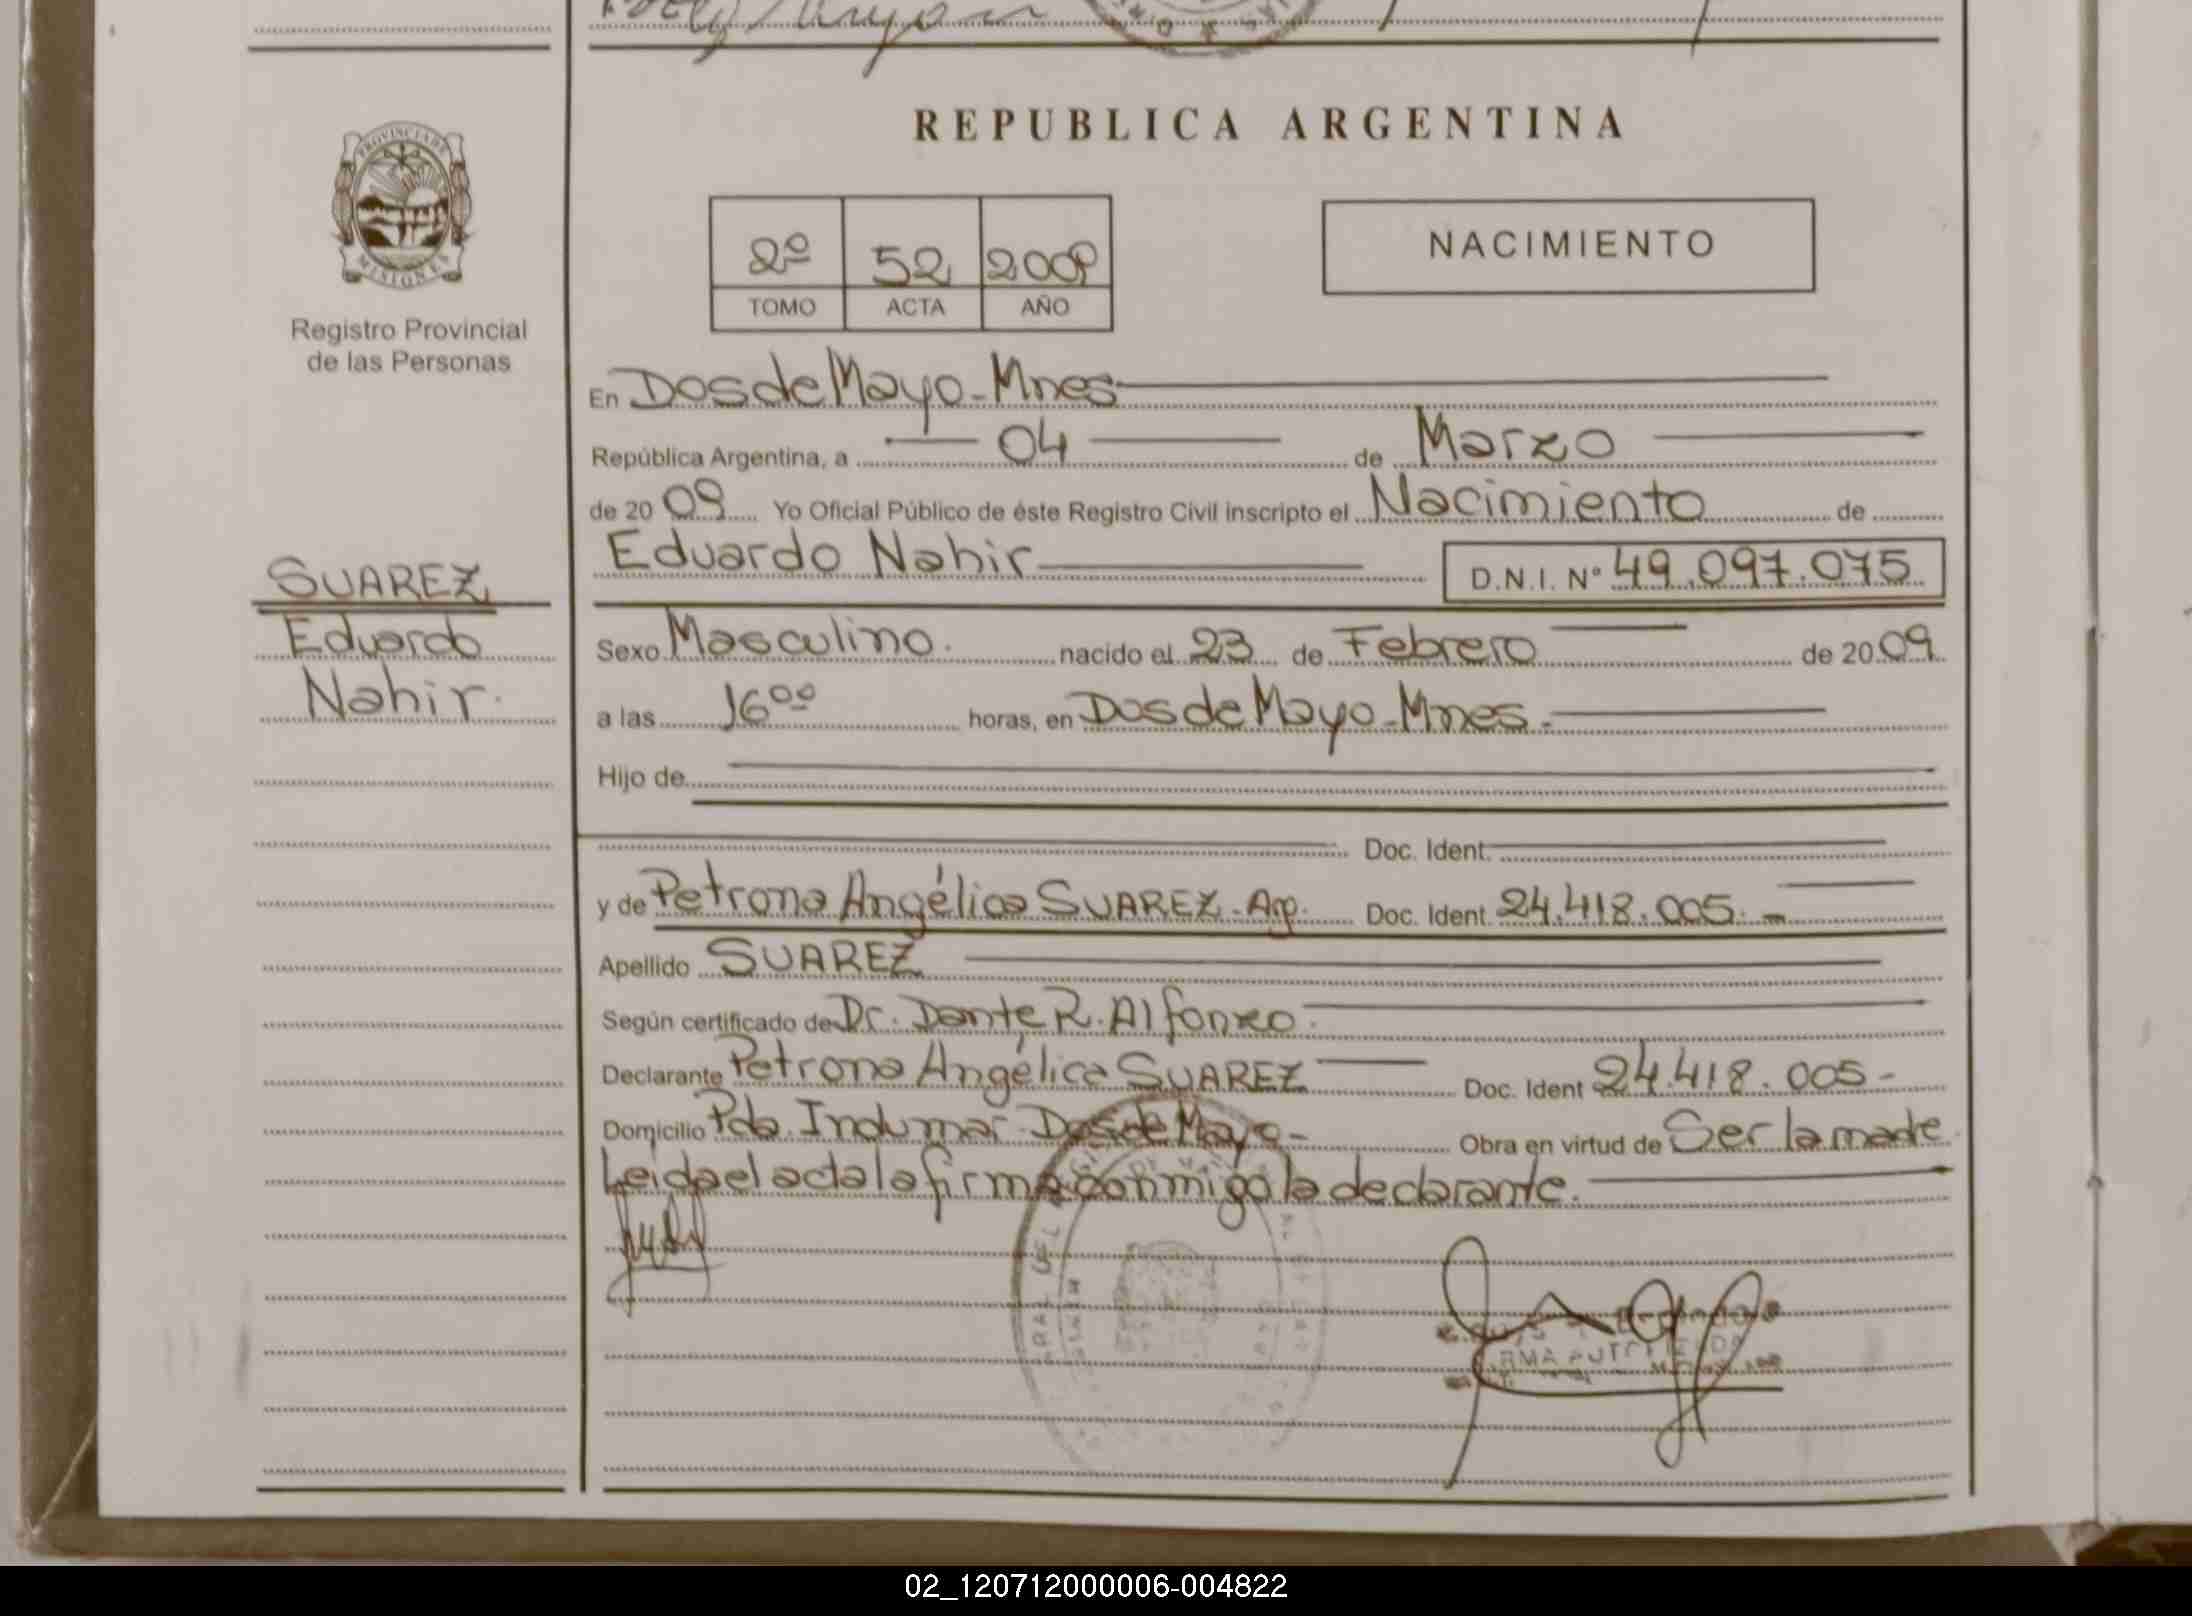 REPUBLICA ARGENTINA
PROVINCIA DE
MISIONES
Registro Provincial
de las Personas
2º 52 2009
TOMO ACTA AÑO
NACIMIENTO
En Dos de Mayo - Mnes
República Argentina, a 04 de Marzo
de 20 09 Yo Oficial Público de éste Registro Civil inscripto el Nacimiento de
Eduardo Nahir D.N.I. Nº 49.097.075
SUAREZ
Eduardo
Nahir.
Sexo Masculino. nacido el 23 de Febrero de 20 09
a las 16ºº horas, en Dos de Mayo - Mnes.-
Hijo de
Doc. Ident.
y de Petrona Angélica SUAREZ - Arg. Doc. Ident. 24.418.005.-
Apellido SUAREZ
Según certificado de Dr. Dante R. Alfonzo.
Declarante Petrona Angélica SUAREZ Doc. Ident 24.418.005-
Domicilio Pda. Indumar Dos de Mayo - Obra en virtud de Ser la madre
Leida el acta la firma conmigo la declarante.
02_120712000006-004822